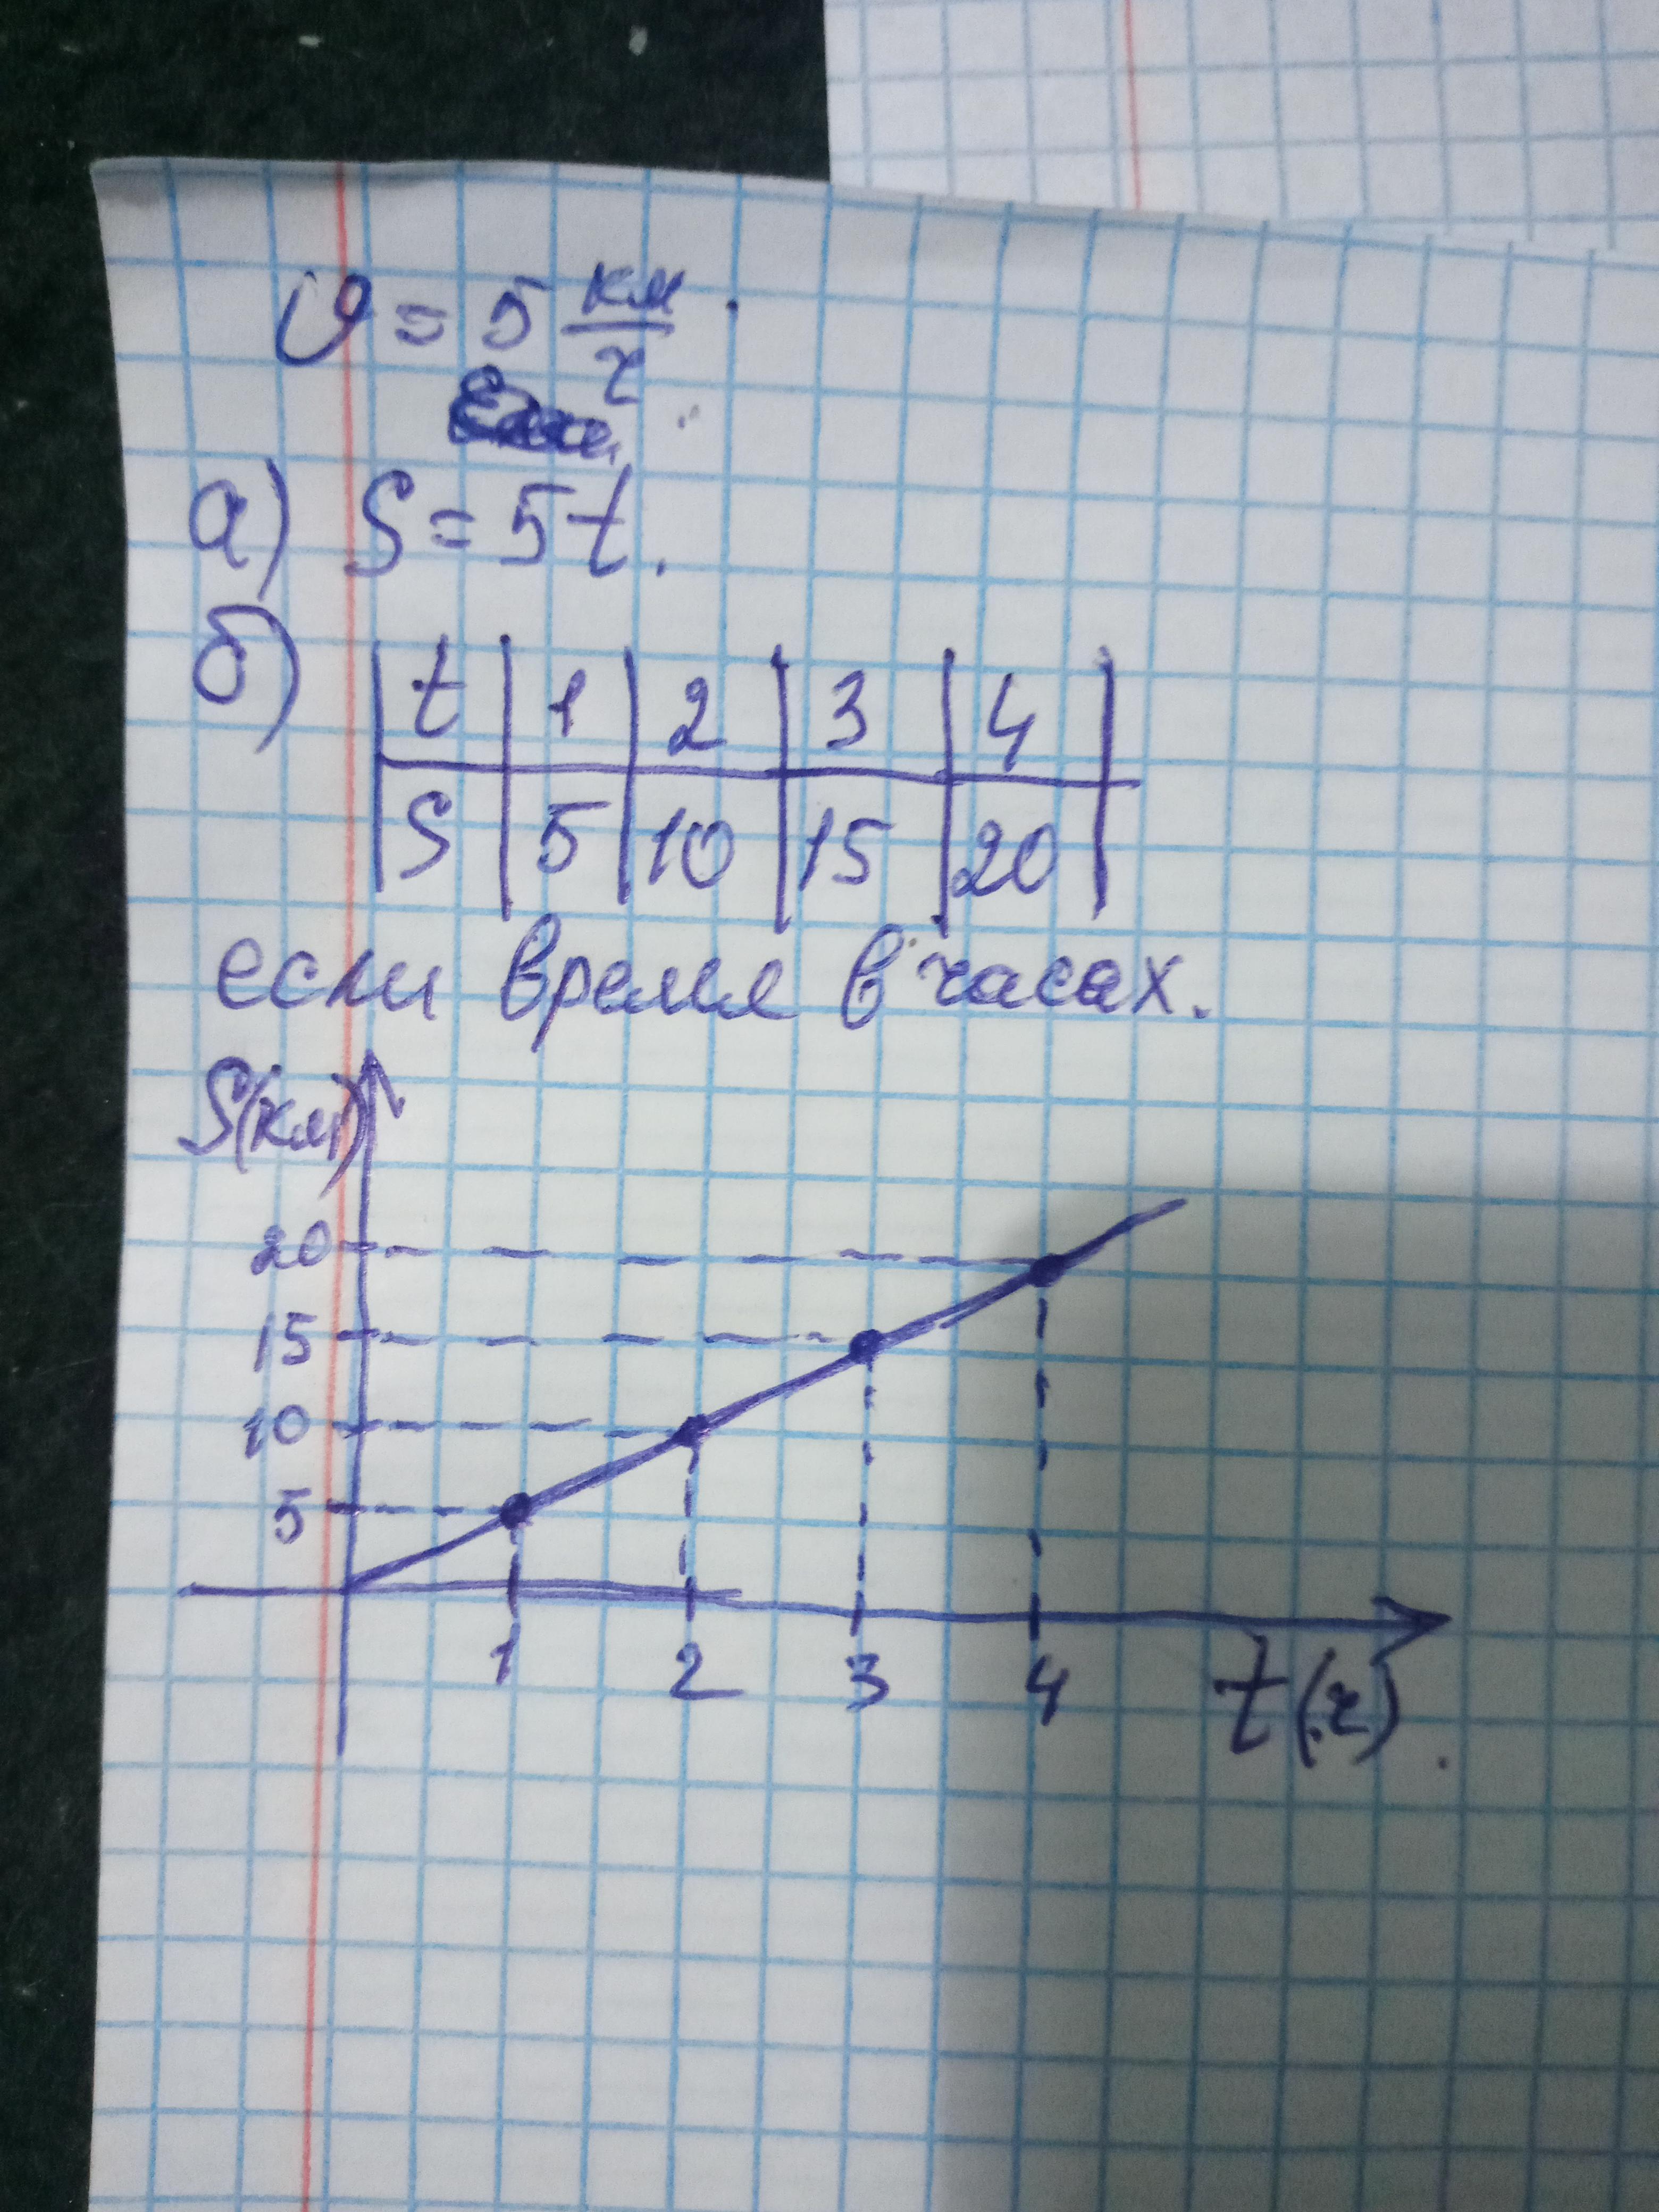 υ = 5 км/ч.
а) S = 5t.
б)
t 1 2 3 4
S 5 10 15 20
если время в часах.
S(км)
20
15
10
5
1 2 3 4 t(ч).